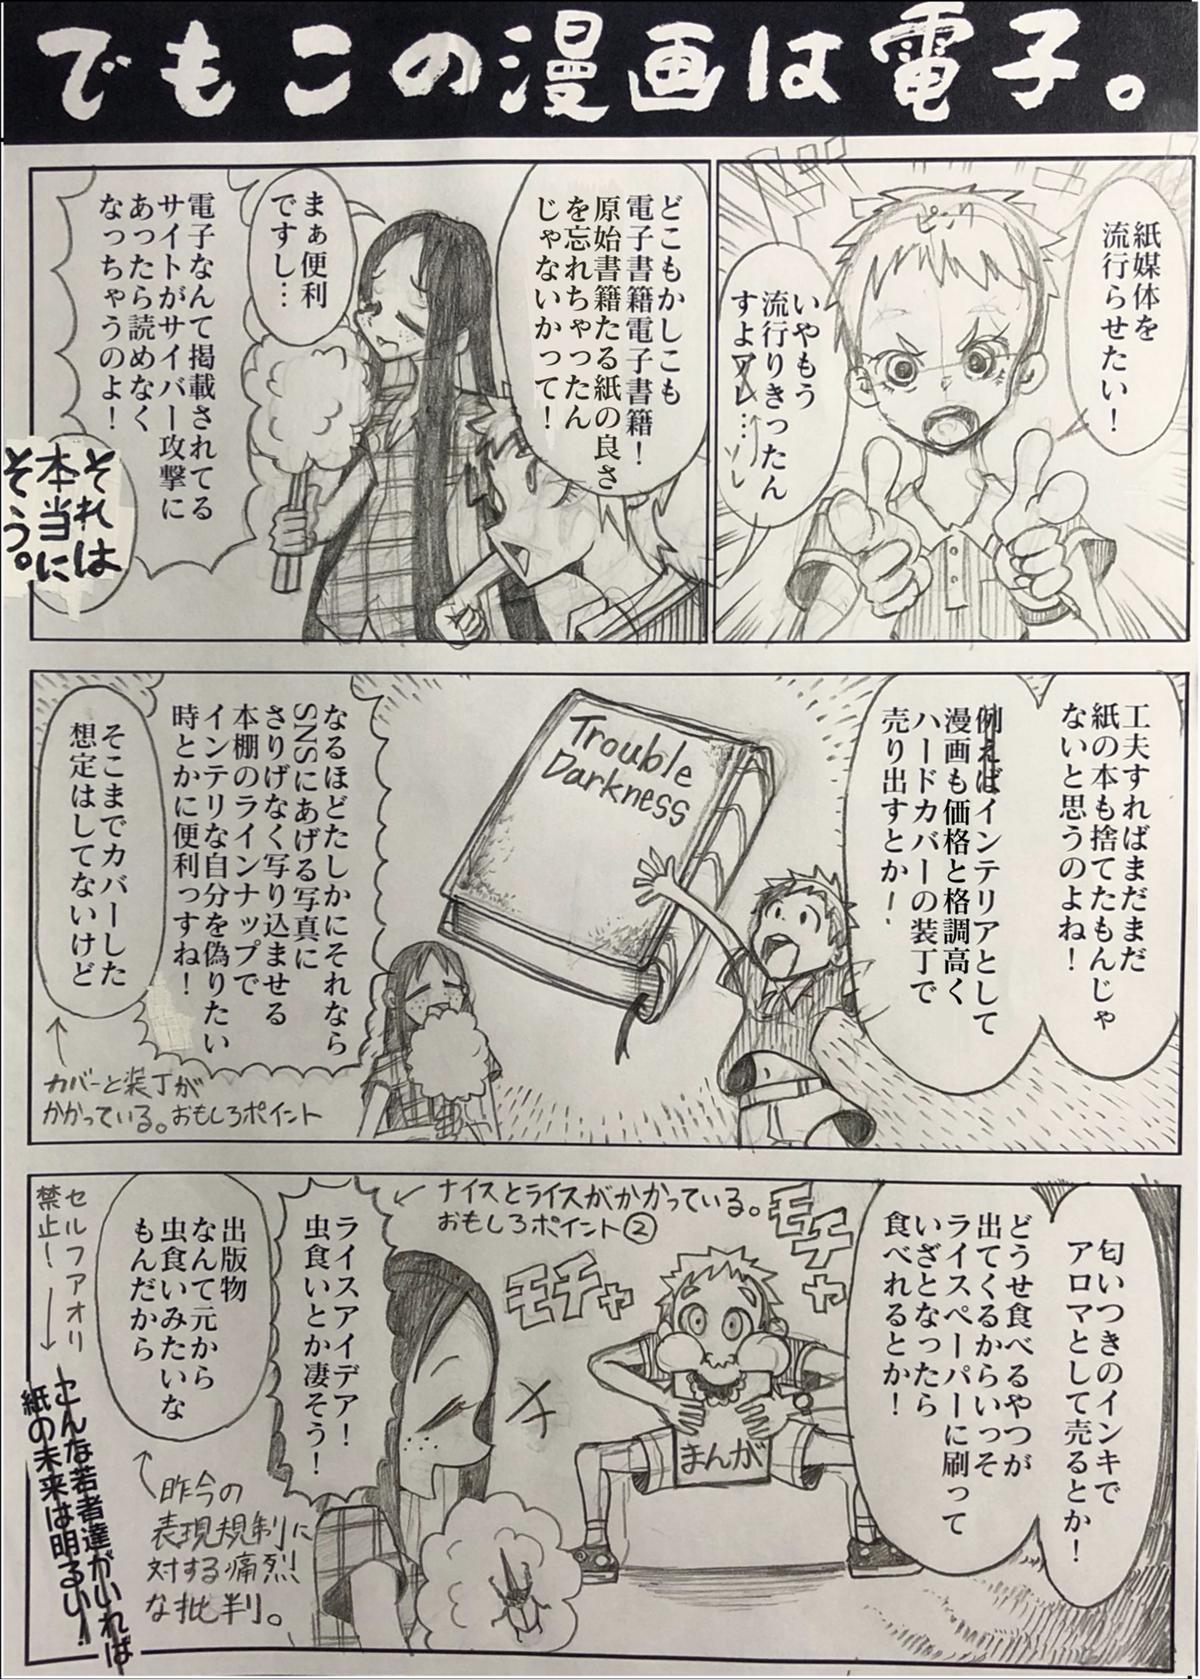 でもこの漫画は電子。
紙媒体を
流行らせたい！
ピック
いやもう
流行りきったん
すよアレ…
ソレ
どこもかしこも
電子書籍電子書籍！
原始書籍たる紙の良さ
を忘れちゃったん
じゃないかって！
まぁ便利
ですし…
電子なんて掲載されてる
サイトがサイバー攻撃に
あったら読めなく
なっちゃうのよ！
それは
本当に
そう。
工夫すればまだまだ
紙の本も捨てたもんじゃ
ないと思うのよね！
例えばインテリアとして
漫画も価格と格調高く
ハードカバーの装丁で
売り出すとか！
Trouble
Darkness
なるほどたしかにそれなら
SNSにあげる写真に
さりげなく写り込ませる
本棚のラインナップで
インテリな自分を偽りたい
時とかに便利っすね！
そこまでカバーした
想定はしてないけど
カバーと装丁が
かかっている。おもしろポイント
匂いつきのインキで
アロマとして売るとか！
どうせ食べるやつが
出てくるからいっそ
ライスペーパーに刷って
いざとなったら
食べれるとか！
モチャ
モチャ
まんが
ナイスとライスがかかっている。
おもしろポイント②
ライスアイデア！
虫食いとか凄そう！
出版物
なんて元から
虫食いみたいな
もんだから
昨今の
表現規制に
対する痛烈
な批判。
セルフアオリ
禁止！
こんな若者達がいれば
紙の未来は明るい！